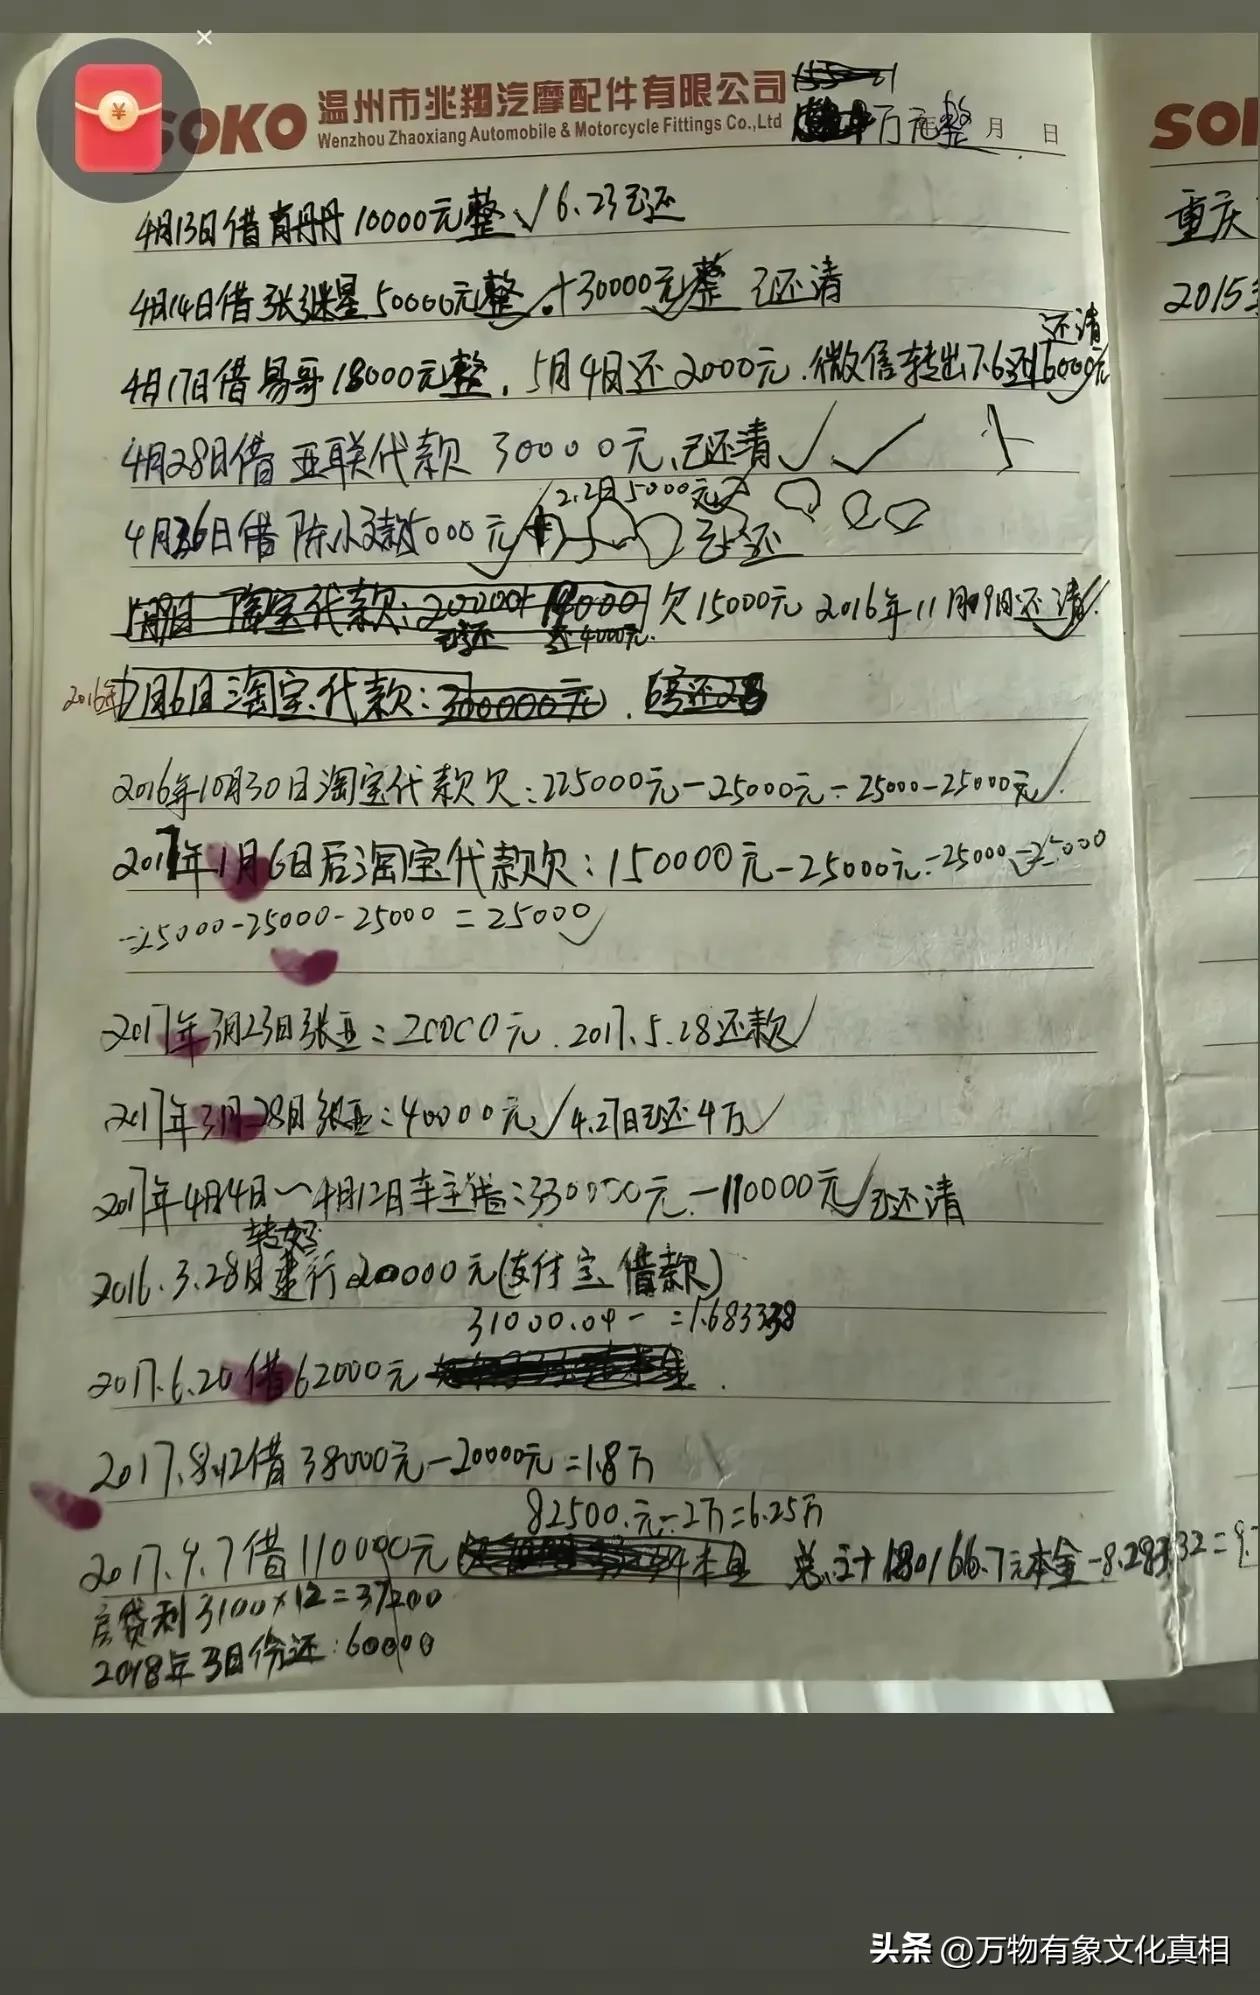 SOKO 温州市兆翔汽摩配件有限公司
Wenzhou Zhaoxiang Automobile & Motorcycle Fittings Co.,Ltd
万元整 月 日
4月13日借 10000元整√6.23已还
4月14日借张继星50000元整.+30000元整 已还清
还清
4月17日借易哥18000元整,5月4日还2000元.微信转出7.6还16000元
4月28日借亚联代款 30000元、已还清√
2.2日5000元
4月26日借陈小 5000元 已还
淘宝代款:200000+ 欠15000元 2016年11月09日还清
已还 还4000元.
2016年7月6日淘宝代款:300000元.
2016年10月30日淘宝代款欠:225000元-25000元-25000-25000元√
2017年1月6日后淘宝代款欠:150000元-25000元-25000-25000
-25000-25000-25000=25000√
2017年3月23日张亚:20000元.2017.5.28还款√
2017年3月28日张亚:40000元√4.27日已还4万√
2017年4月4日~4月12日车主借:330000元-110000元√已还清
2016.3.28日建行200000元(支付宝借款)
31000.04- =1.683338
2017.6.20借62000元
2017.8.12借38000元-20000元=1.8万
82500.元-2万=6.25万
2017.9.7借110000元 本息 总 180166.7元本金-8.28332=9.
房贷利3100×12=37200
2018年3月份还:60000
SO
重庆
2015
¥
头条 @万物有象文化真相